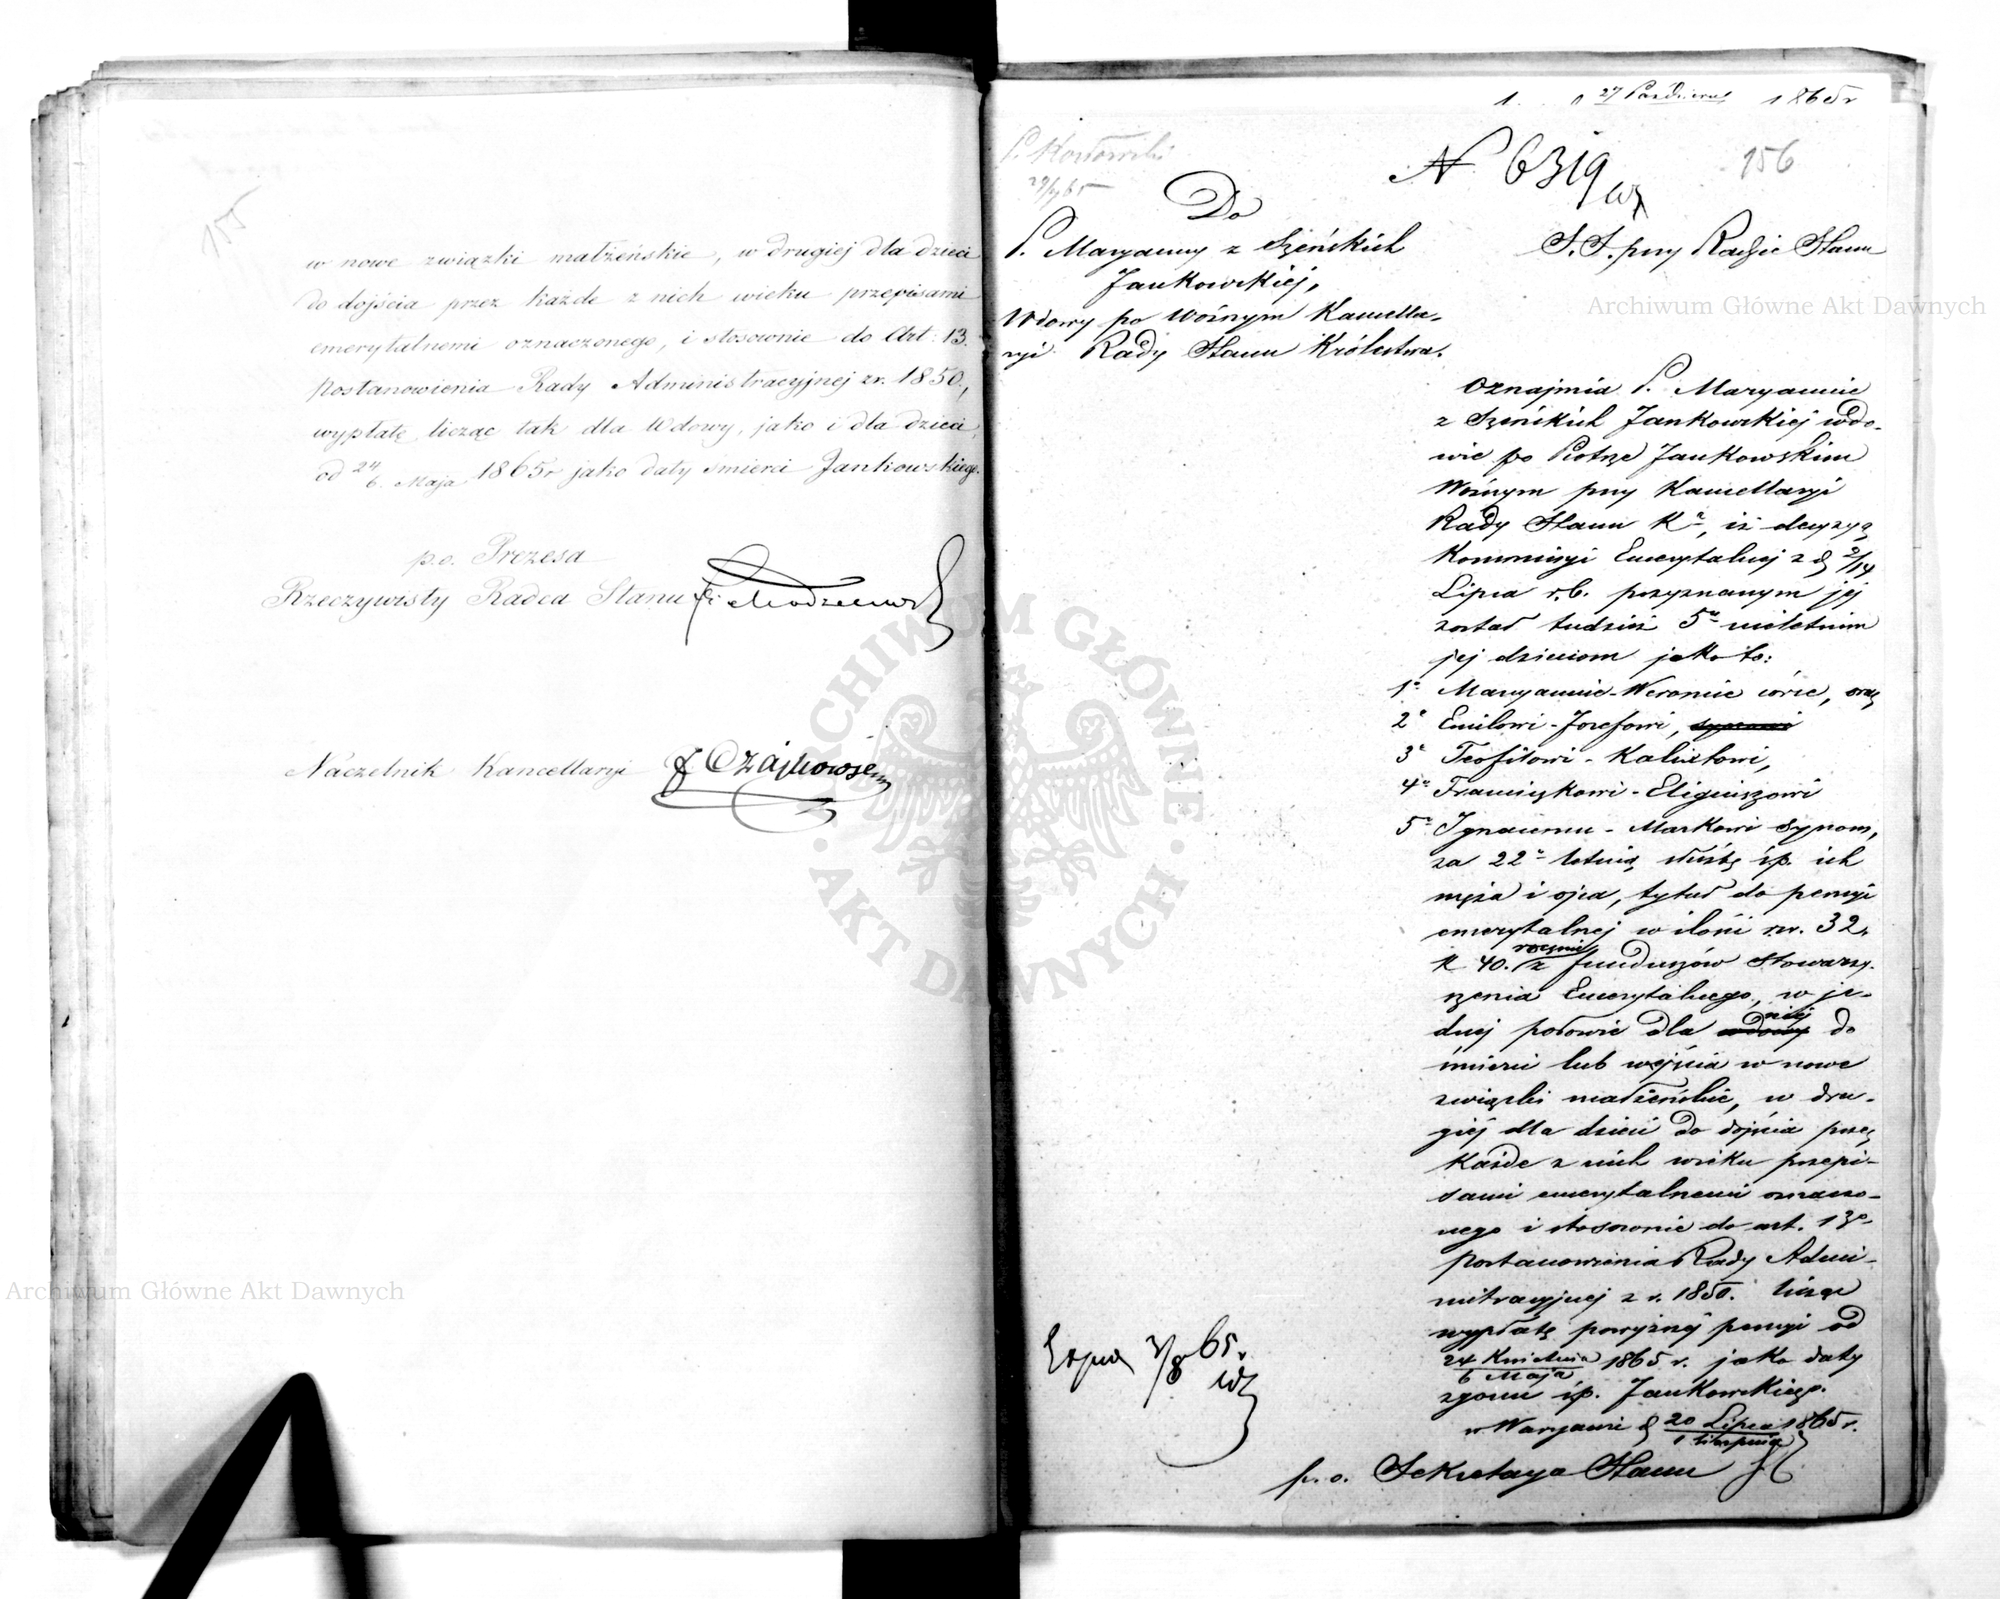 155
w nowe związki małżeńskie, w drugiej dla dzieci
do dojścia przez każde z nich wieku przepisami
emerytalnemi oznaczonego, i stosownie do Art: 13.
Postanowienia Rady Administracyjnej z r. 1850.,
wypłatę, licząc tak dla Wdowy, jako i dla dzieci,
od 24/6. Maja 1865r jako daty śmierci Jankowskiego.
p.o. Prezesa
Rzeczywisty Radca Stanu
Naczelnik Kancellaryi J Czajkowski
27 Październ 1865r
P. Kozłowski
N 6319
156
Do
P. Maryanny z Szeńskich
Jankowskiej,
Wdowy po Woźnym Kancella-
ryi Rady Stanu Królestwa.
S. S. przy Radzie Stanu
Oznajmia P. Maryannie
z Szeńskich Jankowskiej wdo-
wie po Piotrze Jankowskim
Woźnym przy Kancellaryi
Rady Stanu Ka, iż decyzyą
Kommissyi Emerytalnej z d 2/14
Lipca r.b. przyznanym jej
został tudzież 5u nieletnim
jej dzieciom jako to:
1o Maryannie-Weronice córce, oraz
2o Emilowi-Józefowi, synowi
3o Teofilowi-Kalixtowi,
4o Franciszkowi-Eligiuszowi
5o Ignacemu-Markowi synom,
za 22o letnią służbę ś.p. ich
męża i ojca, tytuł do pensyi
emerytalnej w ilości rsr. 32,
k 40. rocznie z funduszów Stowarzy-
szenia Emerytalnego, w je-
dnej połowie dla wdowy niej do
śmierci lub wejścia w nowe
związki małżeńskie, w dru-
giej dla dzieci do dojścia przez
każde z nich wieku przepi-
sami emerytalnemi oznaczo-
nego i stosownie do art. 13o
postanowienia Rady Admi-
nistracyjnej z r. 1850. licząc
wypłatę powyższej pensyi od
24 Kwietnia/6 Maja 1865 r. jako daty
zgonu ś.p. Jankowskiego.
w Warszawie d 20 Lipca/1 Sierpnia 1865 r.
p. o. Sekretarza Stanu
65r
Archiwum Główne Akt Dawnych
Archiwum Główne Akt Dawnych
ARCHIWUM GŁÓWNE · AKT DAWNYCH ·